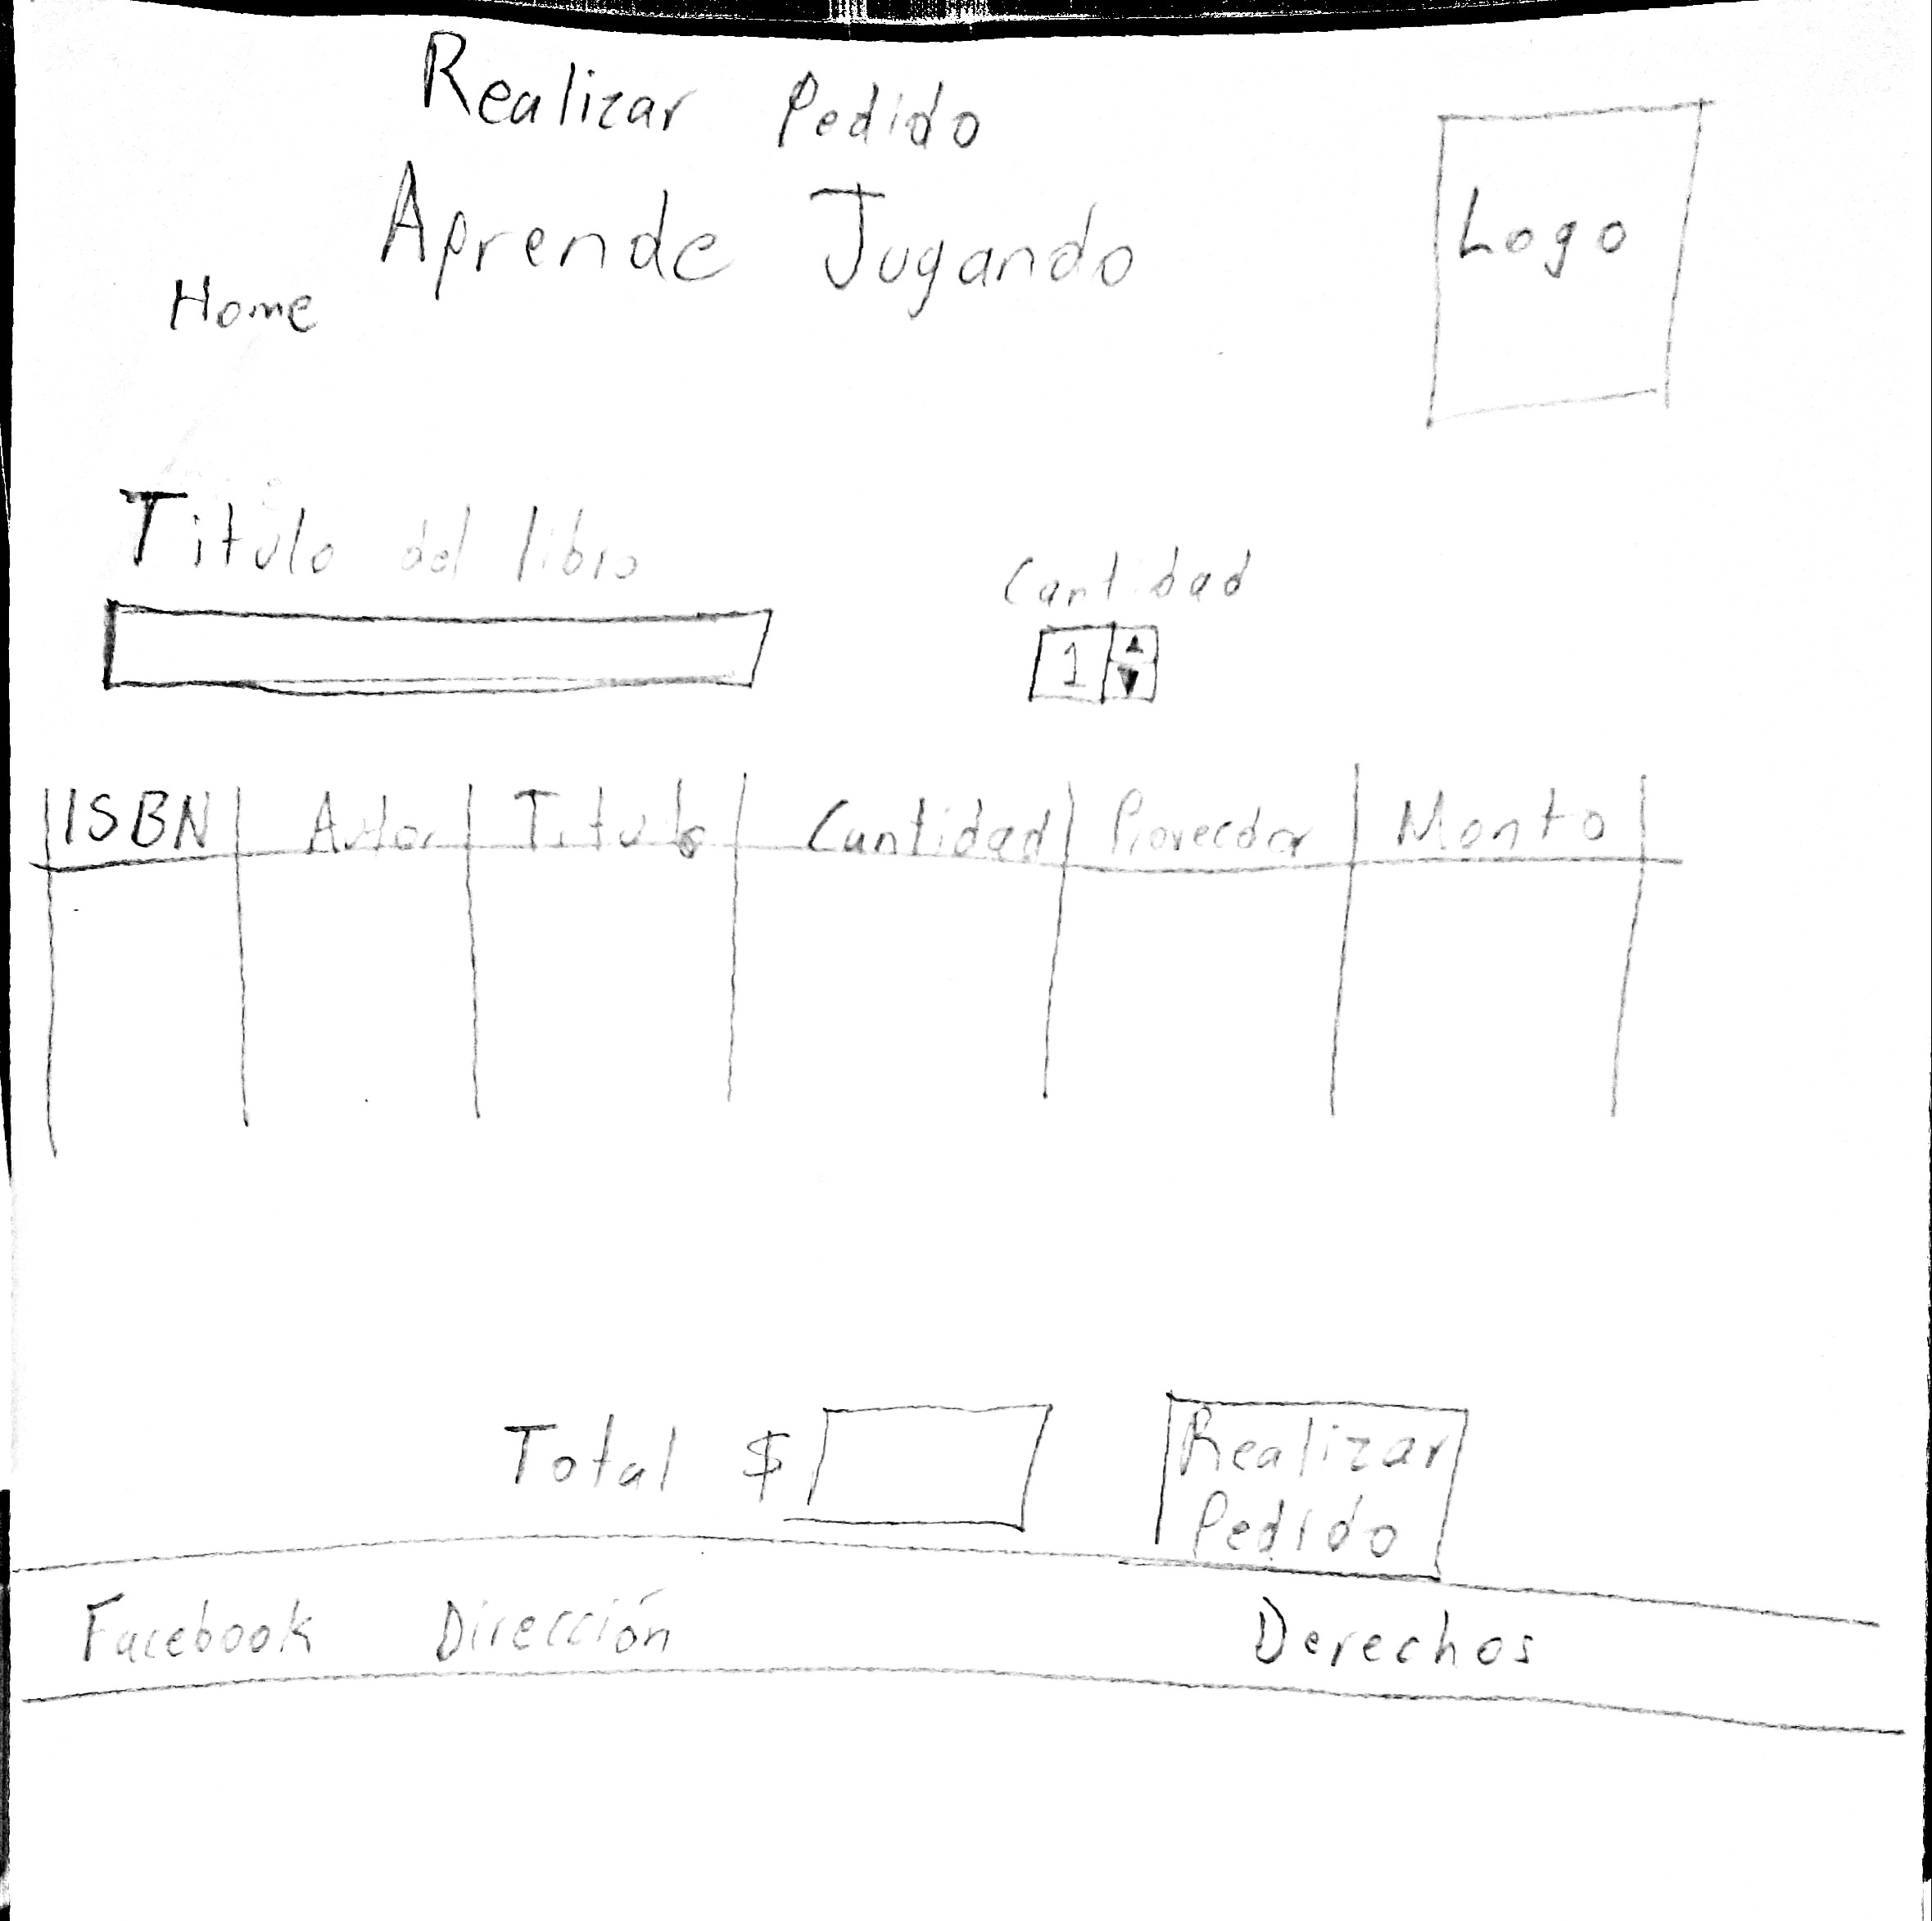 Realizar Pedido
Aprende Jugando
Logo
Home
Titulo del libro
Cantidad
1
ISBN Autor Titulo Cantidad Proveedor Monto
Total $
Realizar
Pedido
Facebook Dirección Derechos